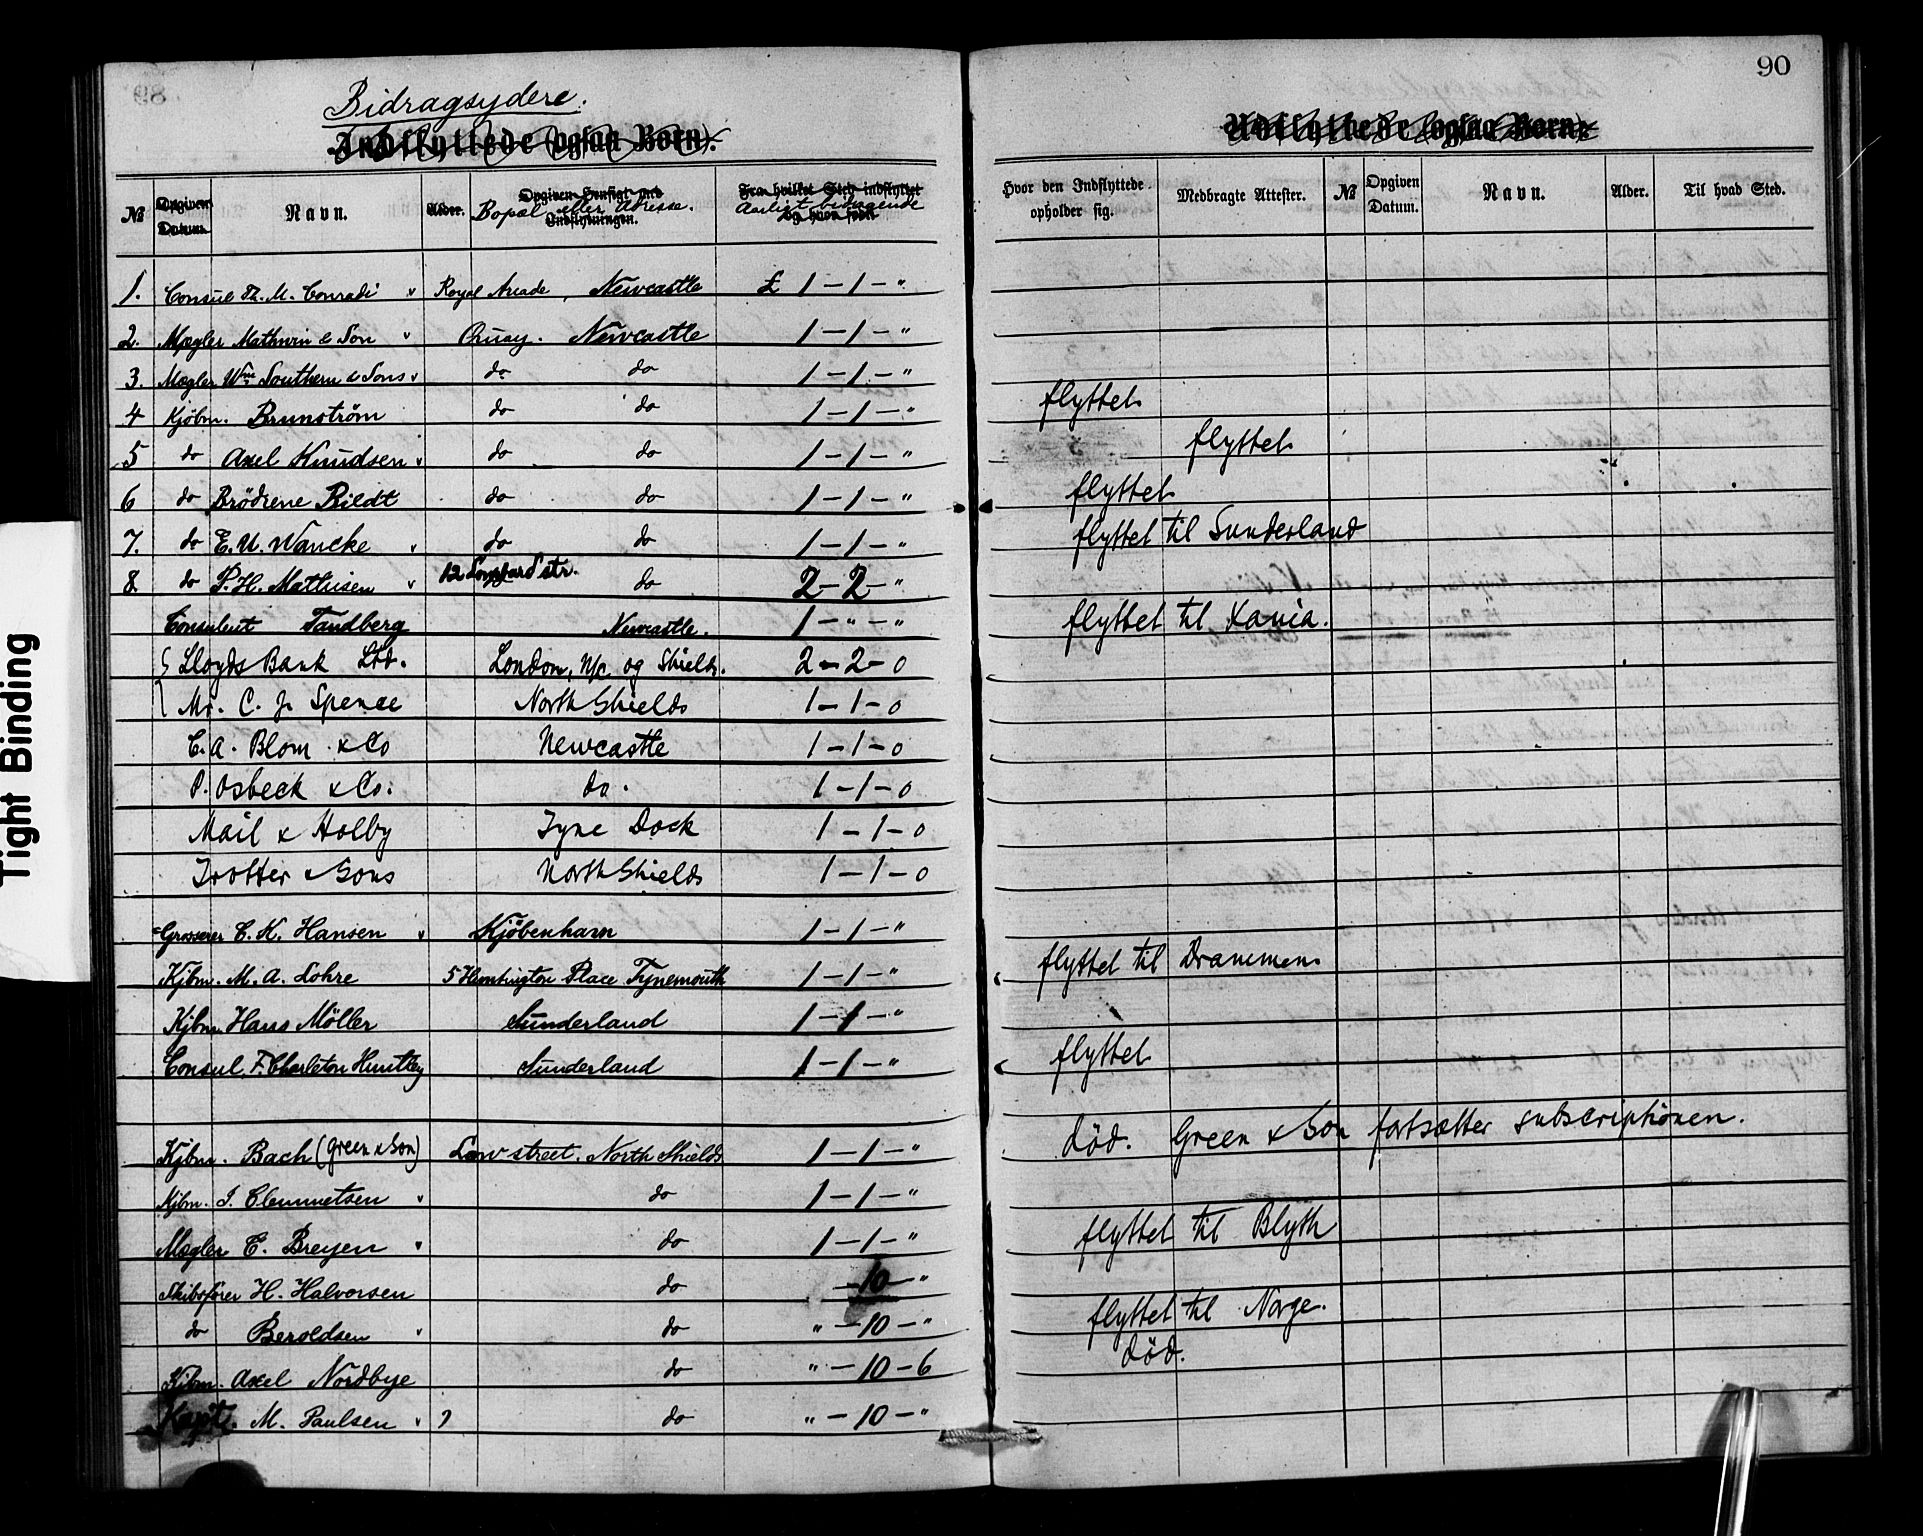 90
Bidragsydere.
Indflyttede (ogsaa Børn).
Udflyttede (ogsaa Børn).
№ Opgiven Datum. Navn. Alder. Opgiven Hensigt med Indflytningen. Bopæl eller Adresse. Fra hvilket Sted indflyttet og hvor født Aarligt bidragende
Hvor den Indflyttede opholder sig. Medbragte Attester. № Opgiven Datum. Navn. Alder. Til hvad Sted.
1. Consul Th. M. Conradi " Royal Arcade, Newcastle £ 1-1-"
2. Mægler Mathwin & Son " Quay. Newcastle 1-1-"
3. Mægler Wm Southern & Sons " do do 1-1-"
4 Kjöbm. Brunström do do 1-1-" flyttet
5 do Axel Knudsen " do do 1-1-" flyttet
6 do Brödrene Bildt do do 1-1-" flyttet
7. do E. U. Wancke " do do 1-1-" flyttet til Sunderland
8. do P. H. Mathisen " 12 Lombard str. do 2-2-"
Consulent Tandberg Newcastle. 1-"-" flyttet til Xania.
Lloyds Bank Ltd. London, N/c og Shields. 2-2-0
Mr. C. J. Spence North Shields 1-1-0
C. A. Blom & Co Newcastle 1-1-0
P. Osbeck & Co. do. 1-1-0
Mail & Holby Tyne Dock 1-1-0
Trotter & Sons North Shields 1-1-0
Grosserer C. K. Hansen " Kjöbenhavn 1-1-"
Kjbm. M. A. Lohre 5 Huntington Place Tynemouth 1-1-" flyttet til Drammen
Kjbm. Hans Möller Sunderland 1-1-"
Consul F. Charleton Huntley Sunderland 1-1-" flyttet
Kjbm. Bach (Green & Son) Low street. North Shields 1-1-" död. Green & Son fortsætter subscriptionen.
Kjbm. J. Clemmetsen " do 1-1-"
Mægler C. Breyen " do 1-1-" flyttet til Blyth
Skibsförer H. Halvorsen do -10-"
do Beroldsen " do "-10-" flyttet til Norge.
Kjbm. Axel Nordbye do "-10-6 död.
Kapt. M. Paulsen " ? do "-10-"
Tight Binding